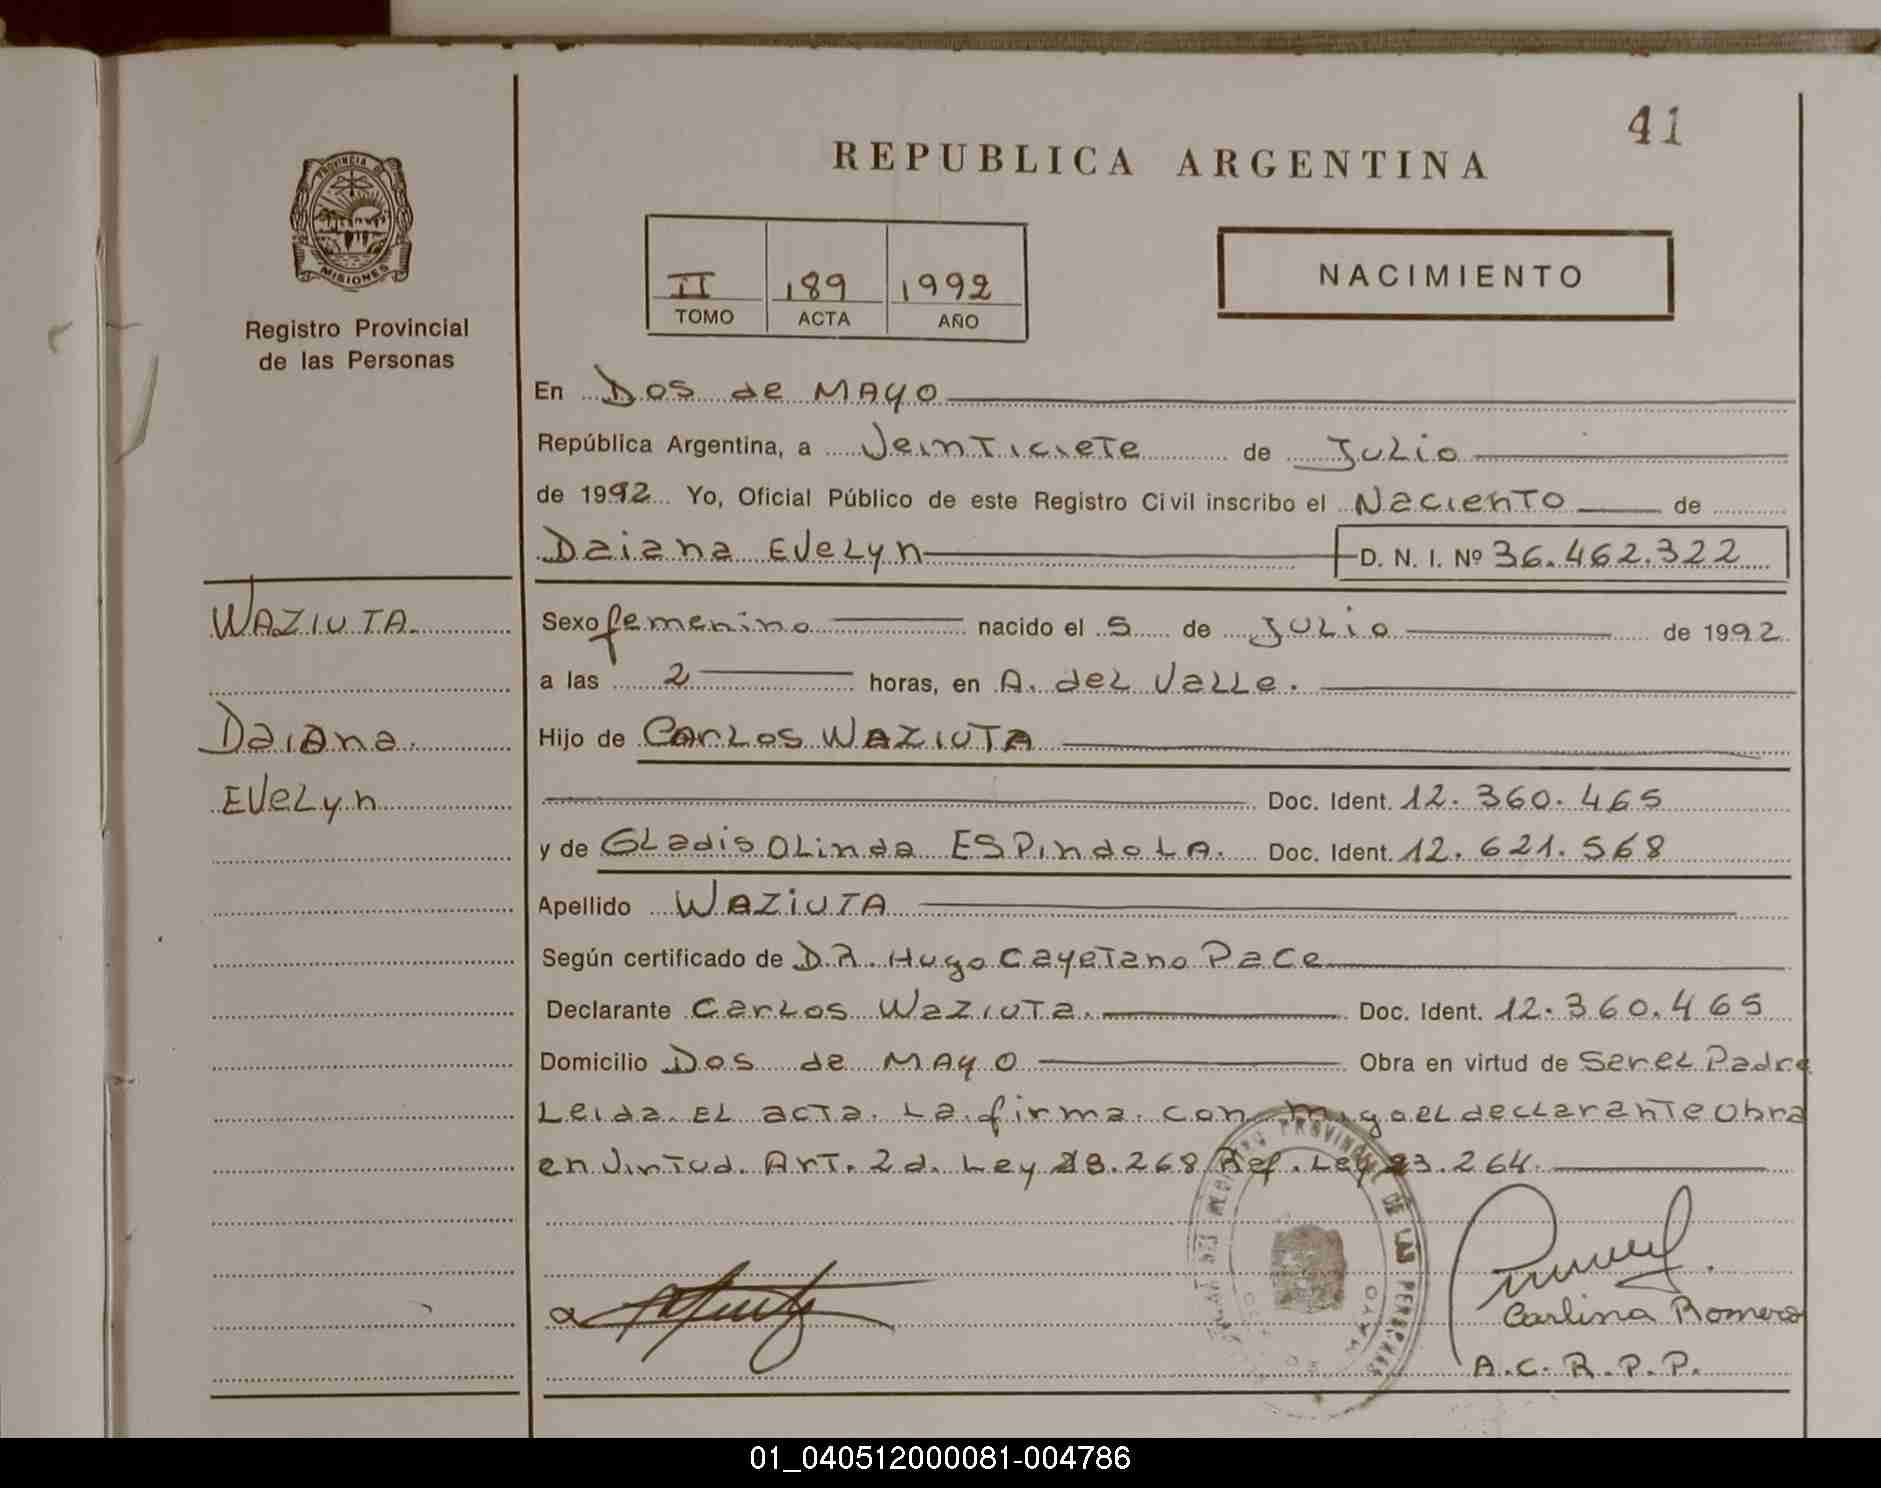 41
PROVINCIA DE
MISIONES
Registro Provincial
de las Personas
REPUBLICA ARGENTINA
II 189 1992
TOMO ACTA AÑO
NACIMIENTO
En Dos de MAYO
República Argentina, a Veinticiete de Julio
de 1992 Yo, Oficial Público de este Registro Civil inscribo el Naciento de
Daiana Evelyn D. N. I. Nº 36.462.322
WAZIUTA
Daiana
Evelyn
Sexo femenino nacido el 5 de Julio de 1992
a las 2 horas, en A. del Valle.
Hijo de Carlos WAZIUTA
Doc. Ident. 12.360.465
y de Gladis Olinda ESPindoLA. Doc. Ident. 12.621.568
Apellido WAZIUTA
Según certificado de DR. Hugo Cayetano Pace
Declarante Carlos Waziuta. Doc. Ident. 12.360.465
Domicilio Dos de MAYO Obra en virtud de Ser el Padre
Leida el acta la firma con migo el declarante obra
en virtud. Art. 2d. Ley 23.268 Ref. Ley 23.264.
REGISTRO PROVINCIAL DE LAS PERSONAS
DOS DE MAYO
Carlina Romero
A.C.R.P.P.
01_040512000081-004786